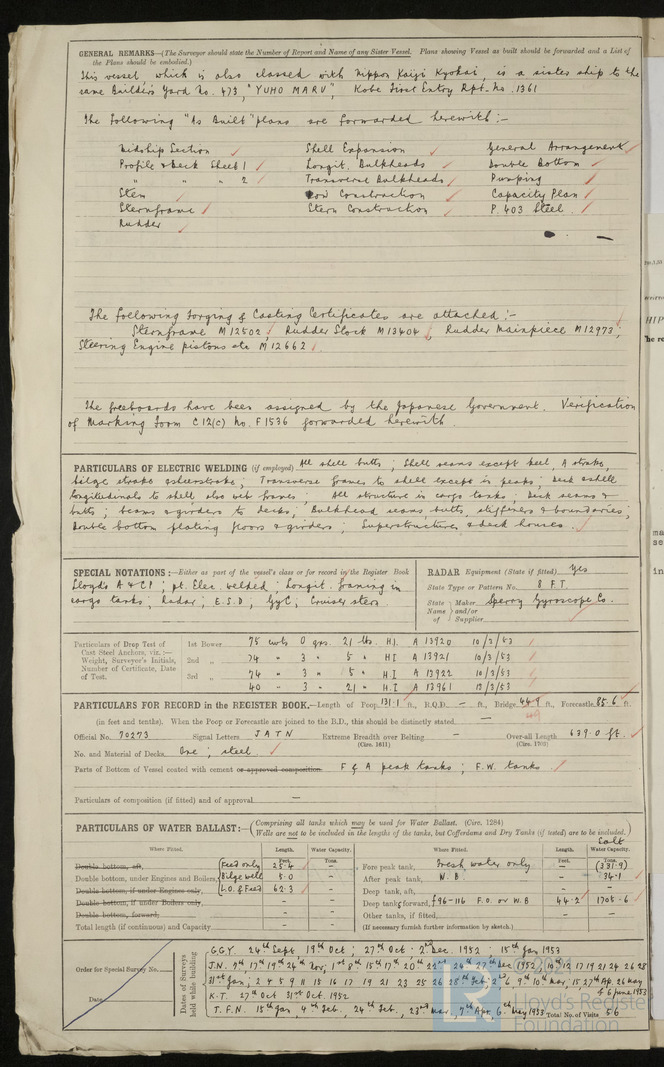 GENERAL REMARKS—(The Surveyor should state the Number of Report and Name of any Sister Vessel. Plans showing Vessel as built should be forwarded and a List of
the Plans should be embodied.)
This vessel, which is also classed with Nippon Kaiji Kyokai, is a sister ship to the
same Builders Yard No. 473, "YUHO MARU", Kobe First Entry Rpt. No. 1361
The following "As Built" plans are forwarded herewith :-
Midship Section Shell Expansion General Arrangement
Profile & Deck Sheet 1 Longit. Bulkheads Double Bottom
" " " 2 Transverse Bulkheads Pumping
Stem Bow Construction Capacity Plan
Sternframe Stern Construction P. 403 Steel
Rudder
The following Forging & Casting Certificates are attached :-
Sternframe M12502, Rudder Stock M13404, Rudder Mainpiece M12973;
Steering Engine pistons etc M12662
The freeboards have been assigned by the Japanese Government. Verification
of Marking Form C12(c) No. F1536 forwarded herewith.
PARTICULARS OF ELECTRIC WELDING (if employed) All shell butts; Shell seams except keel, A strake,
bilge strake & sheerstrake; Transverse frames to shell except in peaks; Deck & shell
longitudinals to shell also web frames; All structure in cargo tanks; Deck seams &
butts; beams & girders to decks; Bulkhead seams, butts, stiffeners & boundaries;
Double bottom plating floors & girders; Superstructures & deck houses.
SPECIAL NOTATIONS:—Either as part of the vessel's class or for record in the Register Book
Lloyd's A & C P; pt. Elec. welded; Longit. framing in
cargo tanks; Radar; E.S.D; GyC; Cruiser stern.
RADAR Equipment (State if fitted) Yes
State Type or Pattern No. 8 F.T
State Name of Maker and/or Supplier Sperry Gyroscope Co.
Particulars of Drop Test of
Cast Steel Anchors, viz. :—
Weight, Surveyor's Initials,
Number of Certificate, Date
of Test.
1st Bower 75 cwts 0 qrs. 21 lbs. H.I. A 13920 10/3/53
2nd " 74 " 3 " 5 " H.I A 13921 10/3/53
3rd " 74 " 3 " 5 " H.I A 13922 10/3/53
40 " 3 " 21 " H.I A 13961 12/3/53
PARTICULARS FOR RECORD in the REGISTER BOOK.—Length of Poop 131.1 ft., R.Q.D. — ft., Bridge 44.9 ft., Forecastle 85.6 ft.
(in feet and tenths). When the Poop or Forecastle are joined to the B.D., this should be distinctly stated —
Official No. 70273 Signal Letters JATN Extreme Breadth over Belting (Circ. 1611) — Over-all Length (Circ. 1703) 639.0 ft.
No. and Material of Decks. One; steel.
Parts of Bottom of Vessel coated with cement or approved composition. F & A peak tanks; F.W. tanks
Particulars of composition (if fitted) and of approval —
PARTICULARS OF WATER BALLAST:—(Comprising all tanks which may be used for Water Ballast. (Circ. 1284)
Wells are not to be included in the lengths of the tanks, but Cofferdams and Dry Tanks (if tested) are to be included.)
Salt
Where Fitted. Length. Water Capacity. Where Fitted. Length. Water Capacity.
Feet. Tons. Feet. Tons.
Double bottom, aft, Feed only 25.4 — Fore peak tank, Fresh water only — (331.9)
Double bottom, under Engines and Boilers, Bilge well 5.0 — After peak tank, W.B. — 34.1
Double bottom, if under Engines only, L.O. & Feed 62.3 — Deep tank, aft, — —
Double bottom, if under Boilers only, — — Deep tank, forward, f96-116 F.O. or W.B 44.2 1705.6
Double bottom, forward, — — Other tanks, if fitted, — —
Total length (if continuous) and Capacity — — (If necessary furnish further information by sketch.)
Order for Special Survey No.
Date
Dates of Surveys held while building
G.G.Y. 24th Sept. 19th Oct; 27th Oct - 2nd Dec. 1952 - 15th Jan 1953
J.N. 9th 17th 19th 24th Nov; 1st 8th 15th 17th 20th 22nd 24th 27th Dec 1952, 10th 12 17 19 21 24 26 28
31st Jan; 2 4 5 9 11 15 16 17 19 21 23 25 26 28th Feb; 2nd 6 9 10th Mar; 15 27th Ap. 26 May
& 6 June 1953
K.T. 27th Oct 31st Oct. 1952
T.F.N. 15th Jan, 4th Feb, 24th Feb, 23rd Mar, 7th Apr, 6th May 1953 Total No. of Visits 56
© 2021
LR
Lloyd's Register
Foundation